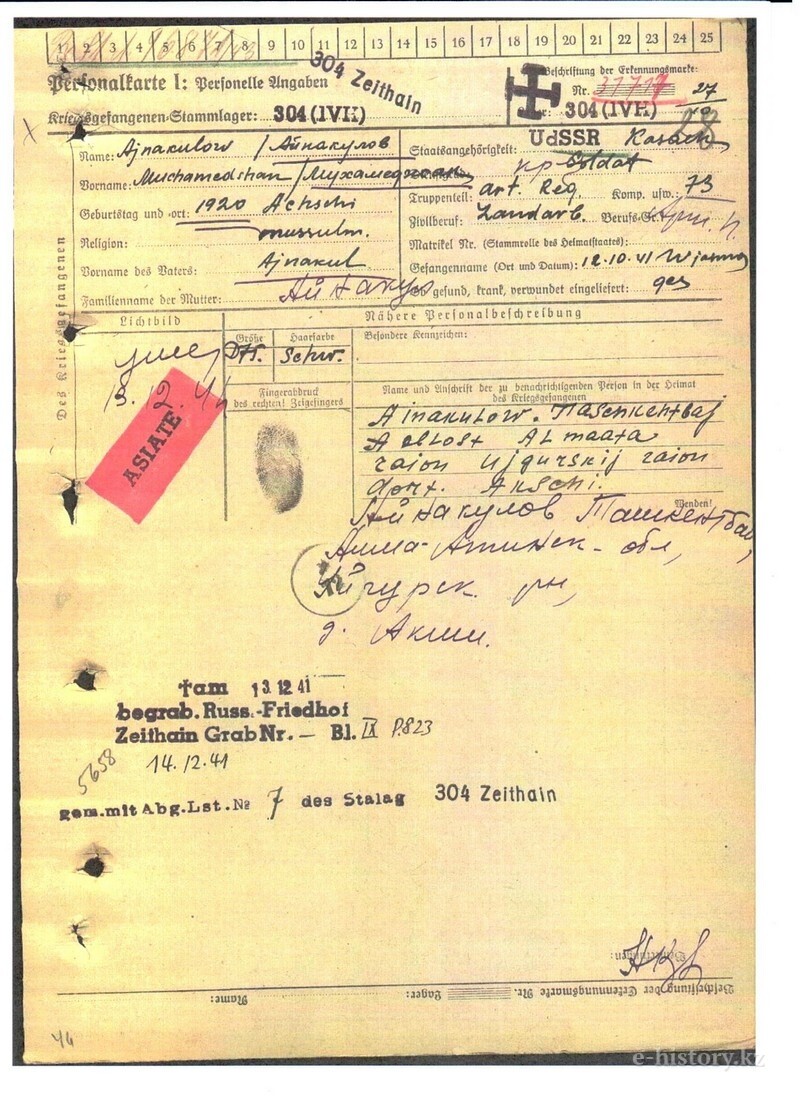 1 2 3 4 5 6 7 8 9 10 11 12 13 14 15 16 17 18 19 20 21 22 23 24 25
304 Zeithain
Personalkarte I: Personelle Angaben
Beschriftung der Erkennungsmarke:
Nr. 27
Kriegsgefangenen-Stammlager: 304 (IVH)
304 (IVH)
Des Kriegsgefangenen
Name: Ajnakulow / Айнакулов
Vorname: Muchamedshan / Мухамеджан
Geburtstag und -ort: 1920 Achschi
Religion: mussulm.
Vorname des Vaters: Ajnakul
Familienname der Mutter: Айнакул
Staatsangehörigkeit: UdSSR Kasach
кр-Soldat
Truppenteil: art. Reg Komp. usw.: 73
Zivilberuf: Landarb. Berufs-Gr.:
Matrikel Nr. (Stammrolle des Heimatstaates):
Gefangennahme (Ort und Datum): 12.10.41 Wjasma
Ob gesund, krank, verwundet eingeliefert: ges
Lichtbild
Nähere Personalbeschreibung
Größe
Haarfarbe
Schw.
Besondere Kennzeichen:
умер
13.12.41
ASIATE
Fingerabdruck
des rechten! Zeigefingers
Name und Anschrift der zu benachrichtigenden Person in der Heimat
des Kriegsgefangenen
Ainakulow. Taschkentbaj
Oblost Almaata
raion Ujgurskij raion
dorf. Akschi.
Wenden!
Айнакулов Ташкентбай
Алма-Атинск-обл,
Уйгурск. рн,
д. Акши.
†am 13.12.41
begrab. Russ.-Friedhof
Zeithain Grab Nr. — Bl. IX P.823
14.12.41
5658
gem. mit Abg. Lst. № 7 des Stalag 304 Zeithain
Bemerkungen:
Beschriftung der Erkennungsmarke Nr. Lager: Name:
e-history.kz